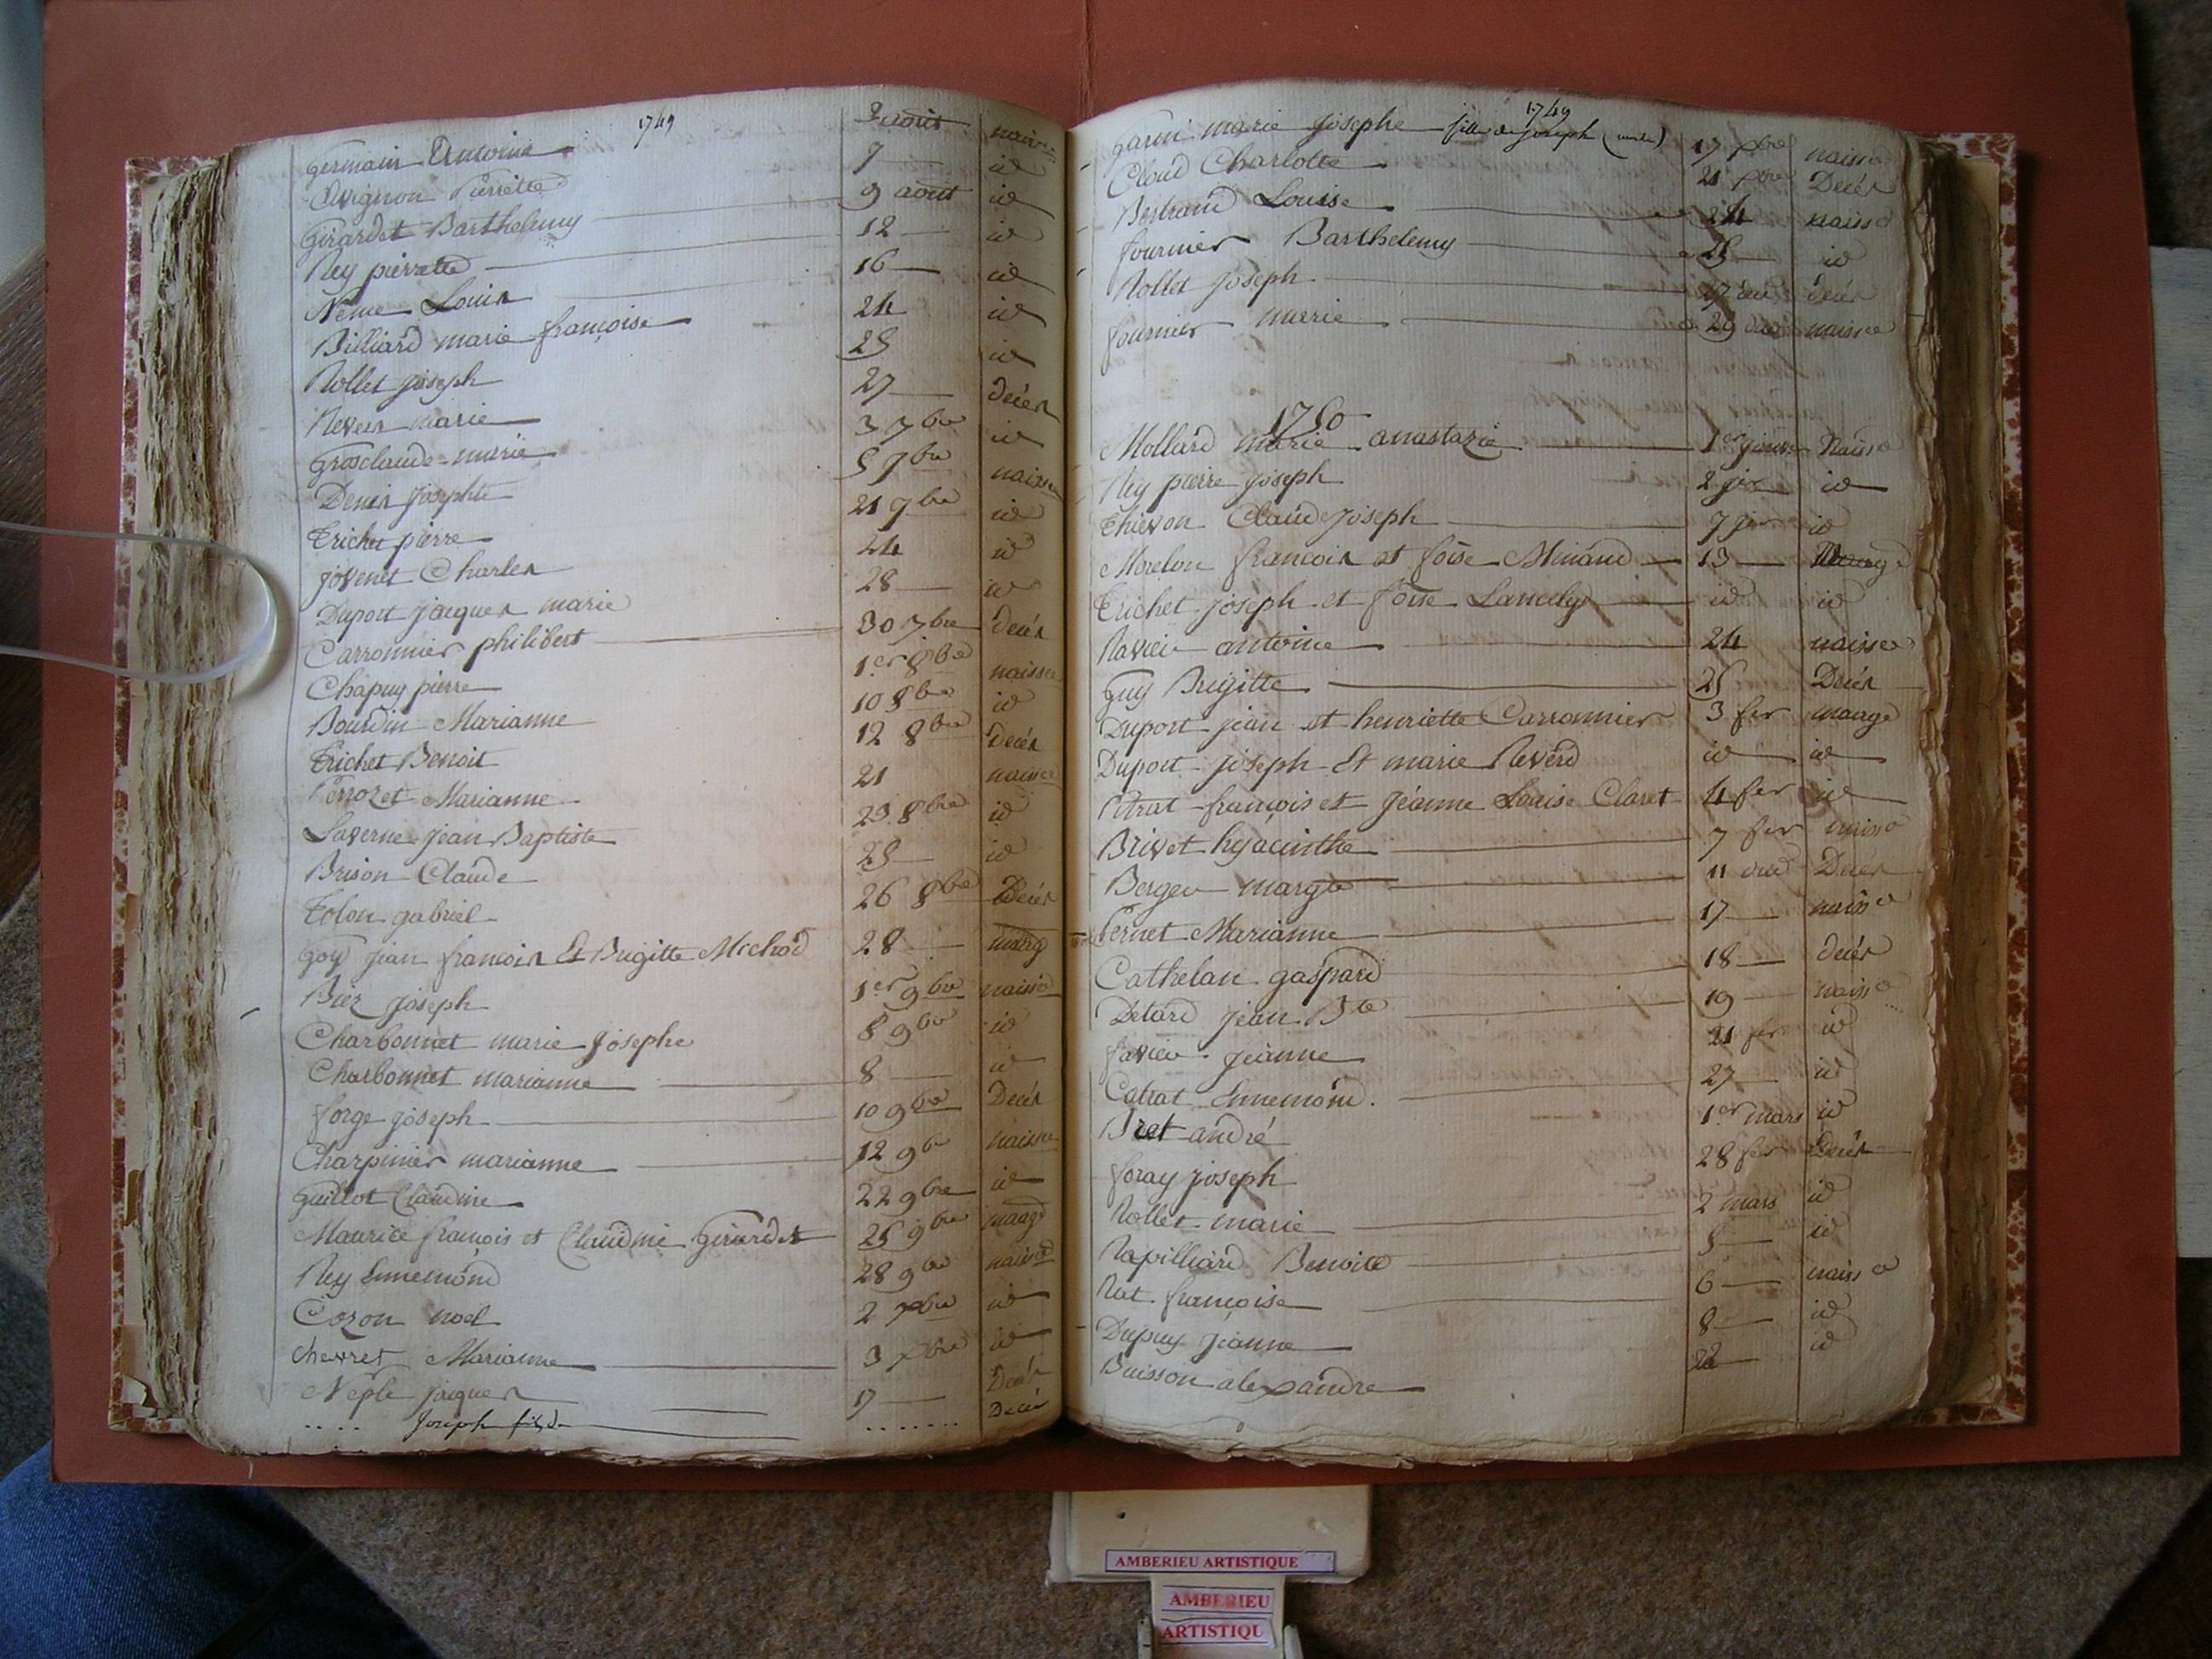 1749
Germain Antoine 2 août naissce
Avignon Pierrette 7 id
Girardet Barthelemy 9 août id
Rey pierrette 12 id
Neme Louis 16 id
Billiard marie françoise 24 id
Rollet joseph 25 id
Rever marie 27 décès
Grosclaude marie 3 7bre id
Denis josephte 5 7bre naissce
Trichet pierre 21 7bre id
jovenet Charles 24 id
Duport jacques marie 28 id
Carronnier philibert 30 7bre decés
Chapuy pierre 1er 8bre naissce
Bourdin Marianne 10 8bre id
Trichet Benoit 12 8bre Decés
Perrozet Marianne 21 naissce
Laverne jean Baptiste 23 8bre id
Brison Claude 25 id
Tolon gabriel 26 8bre Decés
Goy jean francois Et Brigitte Michod 28 marg
Biez joseph 1er 9bre naissce
Charbonnet marie josephe 8 9bre id
Charbonnet marianne 8 id
forge joseph 10 9bre Decés
Charpinier marianne 12 9bre naissce
guillot Claudine 22 9bre id
Maurice francois et Claudine Girardet 25 9bre maage
Rey Ennemond 28 9bre naissce
Cozon noel 2 xbre id
chevret Marianne 3 xbre id
Neple jacques 17 Decés
.... Joseph fils de ....... Decés
1749
garin marie josephe fille de joseph 17 xbre naissce
Cloud Charlotte 21 xbre Decés
Bertrand Louise 24 naissce
fournier Barthelemy 25 id
Rollet joseph 27 dud decés
fournier marie 29 dud naissce
1750
Mollard marie anastazie 1er janvier Naissce
Rey pierre joseph 2 jer id
Thievon Claude joseph 7 jer id
Morelon francois et foise Minaud 13 Mariage
Trichet joseph et foise Lancely id id
Ravier antoine 24 naissce
Guy Brigitte 25 Decés
Duport jean et henriette Carronnier 3 fer maage
Duport joseph Et marie Reverd id id
Petrat francois et Jéanne Louise Claret 4 fer id
Brivet hyacinthe 7 fer naissce
Berger margte 11 dud Decés
Pernet Marianne 17 naissce
Cathelan gaspard 18 decés
Detard jean Bte 19 naissce
favier jeanne 21 fer id
Catrat Ennemond. 27 id
Bret andré 1er mars id
foray joseph 28 fer Decés
Rollet marie 2 mars id
Rapilliard Benoite 5 id
Rat françoise 6 naissce
Dupuy jeanne 8 id
Buisson alexandre 22 id
AMBERIEU ARTISTIQUE
AMBERIEU
ARTISTIQU